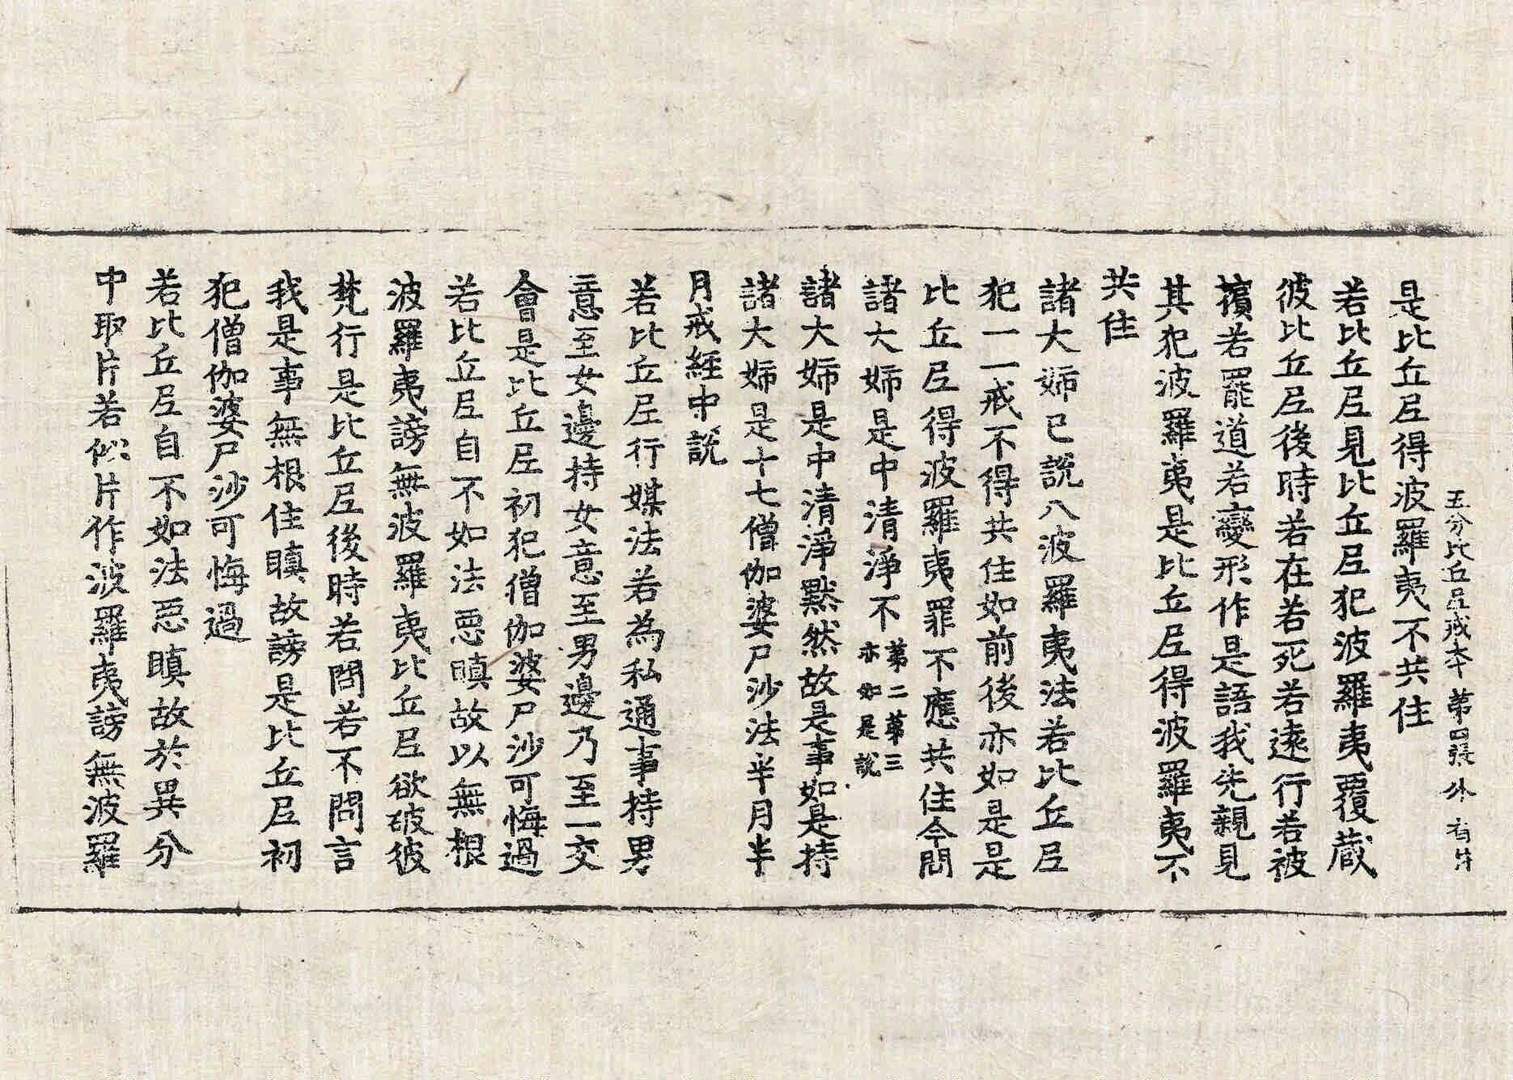 五分比丘尼戒本 第四張 外 有片
是比丘尼得波羅夷不共住
若比丘尼見比丘尼犯波羅夷覆藏
彼比丘尼後時若在若死若遠行若被
擯若罷道若變形作是語我先親見
其犯波羅夷是比丘尼得波羅夷不
共住
諸大姊已說八波羅夷法若比丘尼
犯一一戒不得共住如前後亦如是是
比丘尼得波羅夷罪不應共住今問
諸大姊是中清淨不第二第三
亦如是說
諸大姊是中清淨默然故是事如是持
諸大姊是十七僧伽婆尸沙法半月半
月戒經中說
若比丘尼行媒法若為私通事持男
意至女邊持女意至男邊乃至一交
會是比丘尼初犯僧伽婆尸沙可悔過
若比丘尼自不如法惡瞋故以無根
波羅夷謗無波羅夷比丘尼欲破彼
梵行是比丘尼後時若問若不問言
我是事無根住瞋故謗是比丘尼初
犯僧伽婆尸沙可悔過
若比丘尼自不如法惡瞋故於異分
中取片若似片作波羅夷謗無波羅